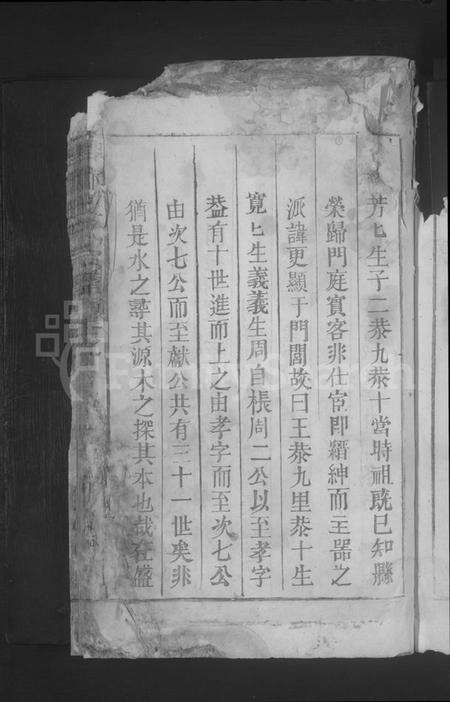 芳匕生子二恭九恭十當時祖旣已知縣
榮歸門庭賓客非仕宦即縉紳而主器之
派諱更顯于門閭故曰王恭九里恭十生
寛匕生義義生周自棖周二公以至孝字
葢有十世進而上之由孝字而至次七公
由次七公而至獻公共有三十一世矣非
猶是水之尋其源木之探其本也哉在盛